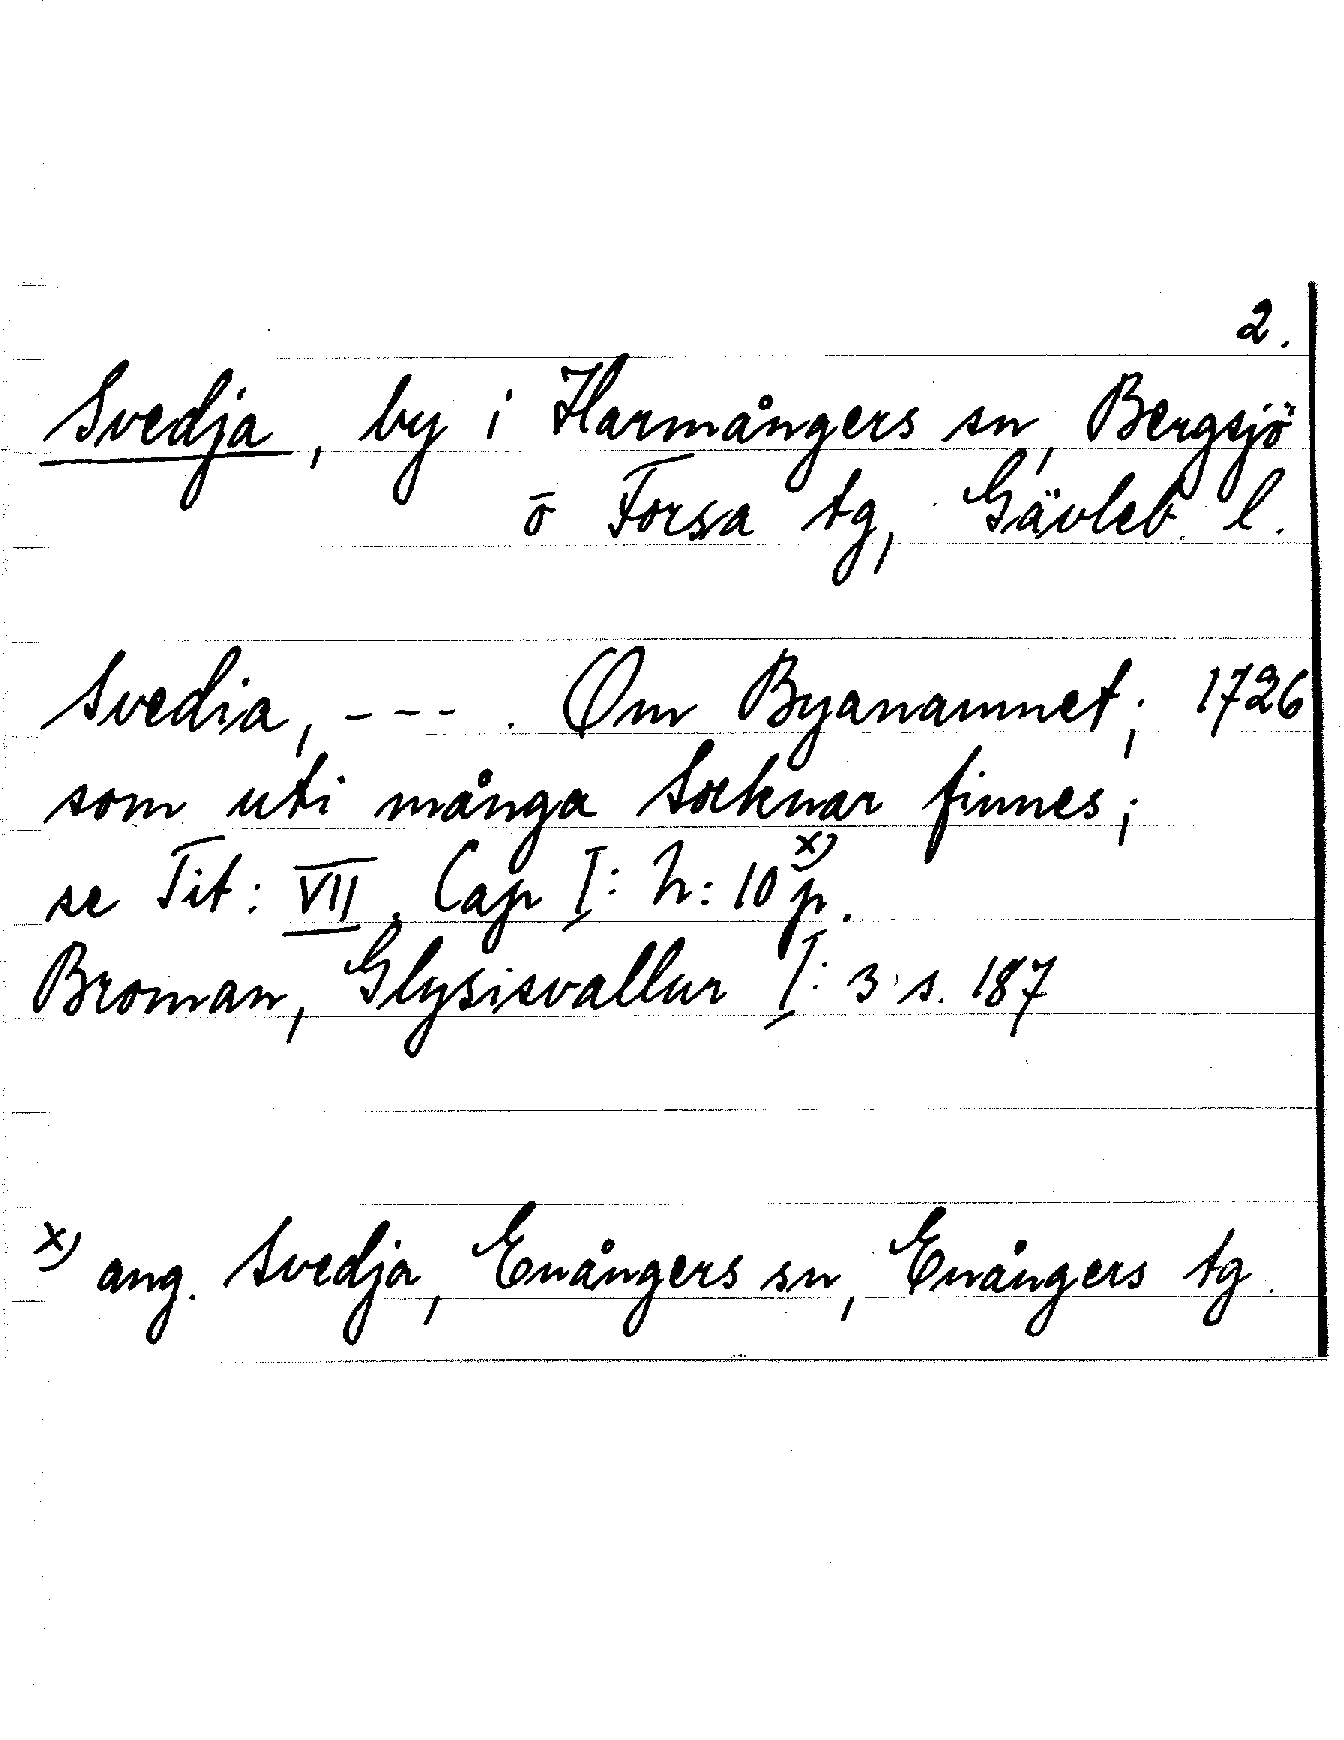 2.
Svedja, by i Harmångers sn, Bergsjö
o Forsa tg, Gävleb. l.
Svedia, --- . Om Byanamnet; 1726
som uti många Soknar finnes;
se Tit: VII. Cap I: h: 10 x) p.
Broman, Glysisvallur I: 3 s. 187
x) ang. Svedja, Enångers sn, Enångers tg.